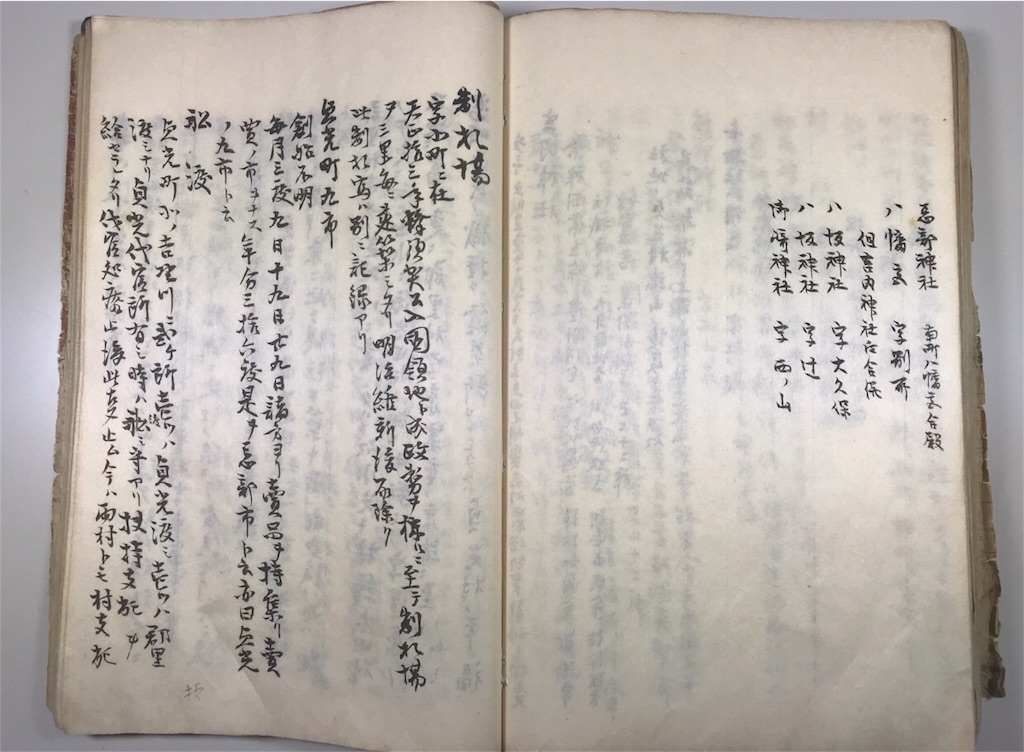 忌部神社 当所八幡宮合殿
八幡宮 字別所
但宮内神社右合併
八坂神社 字大久保
八坂神社 字辻
神社 字西ノ山
制札場
字小町ニ在
天正拾三年蜂須賀公入國領地ト成政務ヲ構ルニ至テ制札場
ヲ三里毎ニ建築ミタリ明治維新後取除ク
此制札寫ハ別ニ記録アリ
貞光町九市
創始不明
毎月三度九日十九日廿九日諸方ヨリ賣品ヲ持集リ賣
買ノ市ヲナス年分三拾六度是ヲ忌部市ト云亦曰貞光
ノ九市ト云
船渡
貞光町分ノ吉野川ニ弐ヶ所壱ツハ貞光渡ミ壱ツハ郡里
渡ミナリ貞光代官所有ミ時ハ船ミ守アリ扶持支配ヲ
給セラレタリ代官処廃止後此支止ム今ハ両村トモ村支配